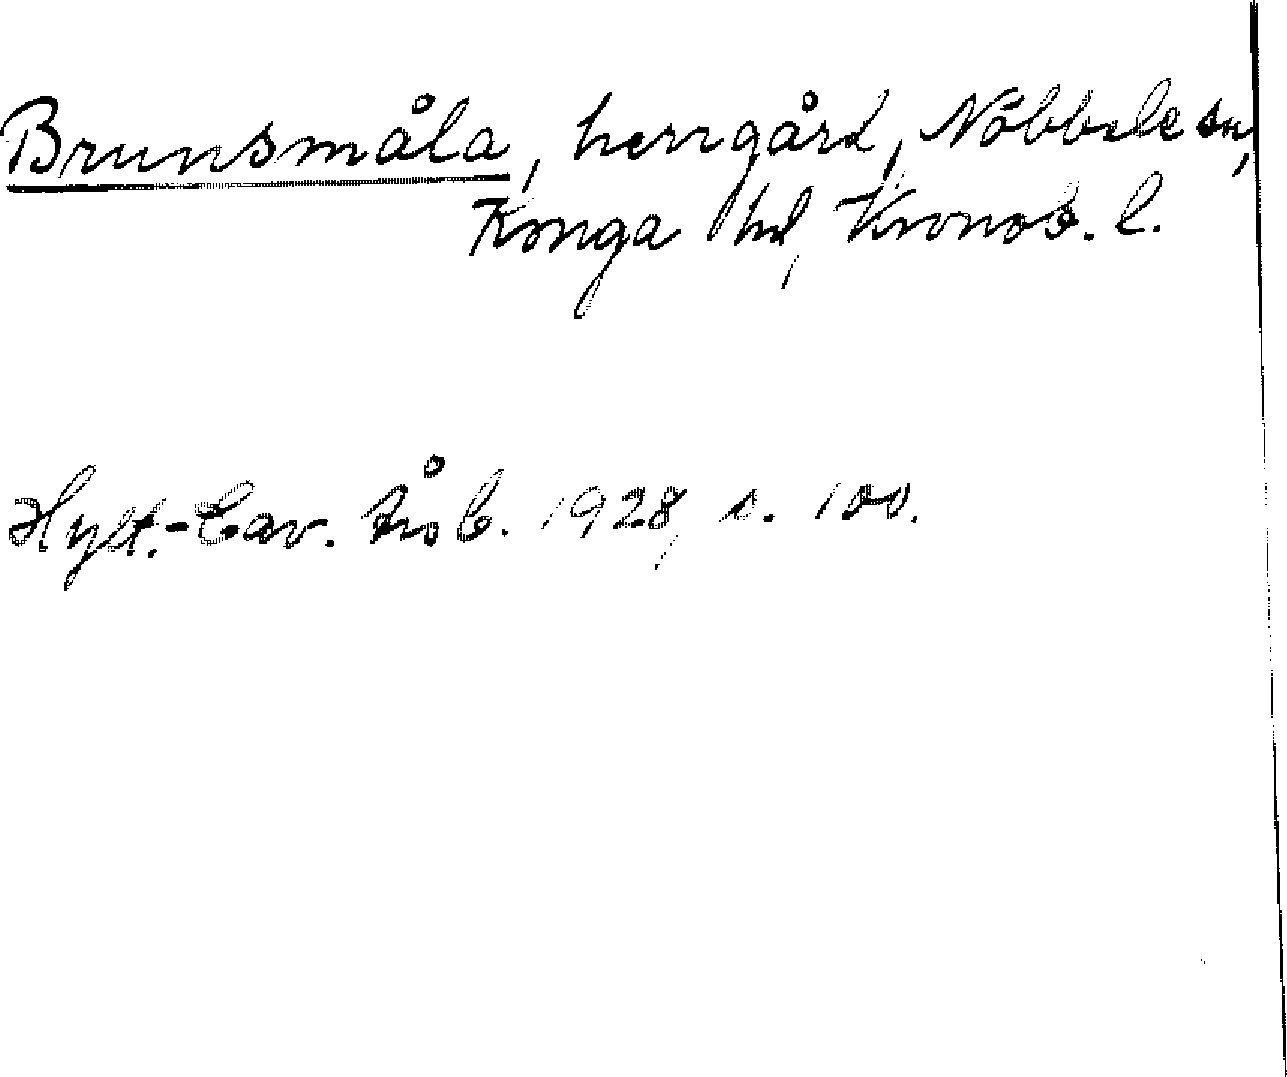 Brunsmåla, herrgård, Nöbbele sn,
Konga hd, Kronob. l.
Hylt.-Cav. håb. 1928, s. 100.